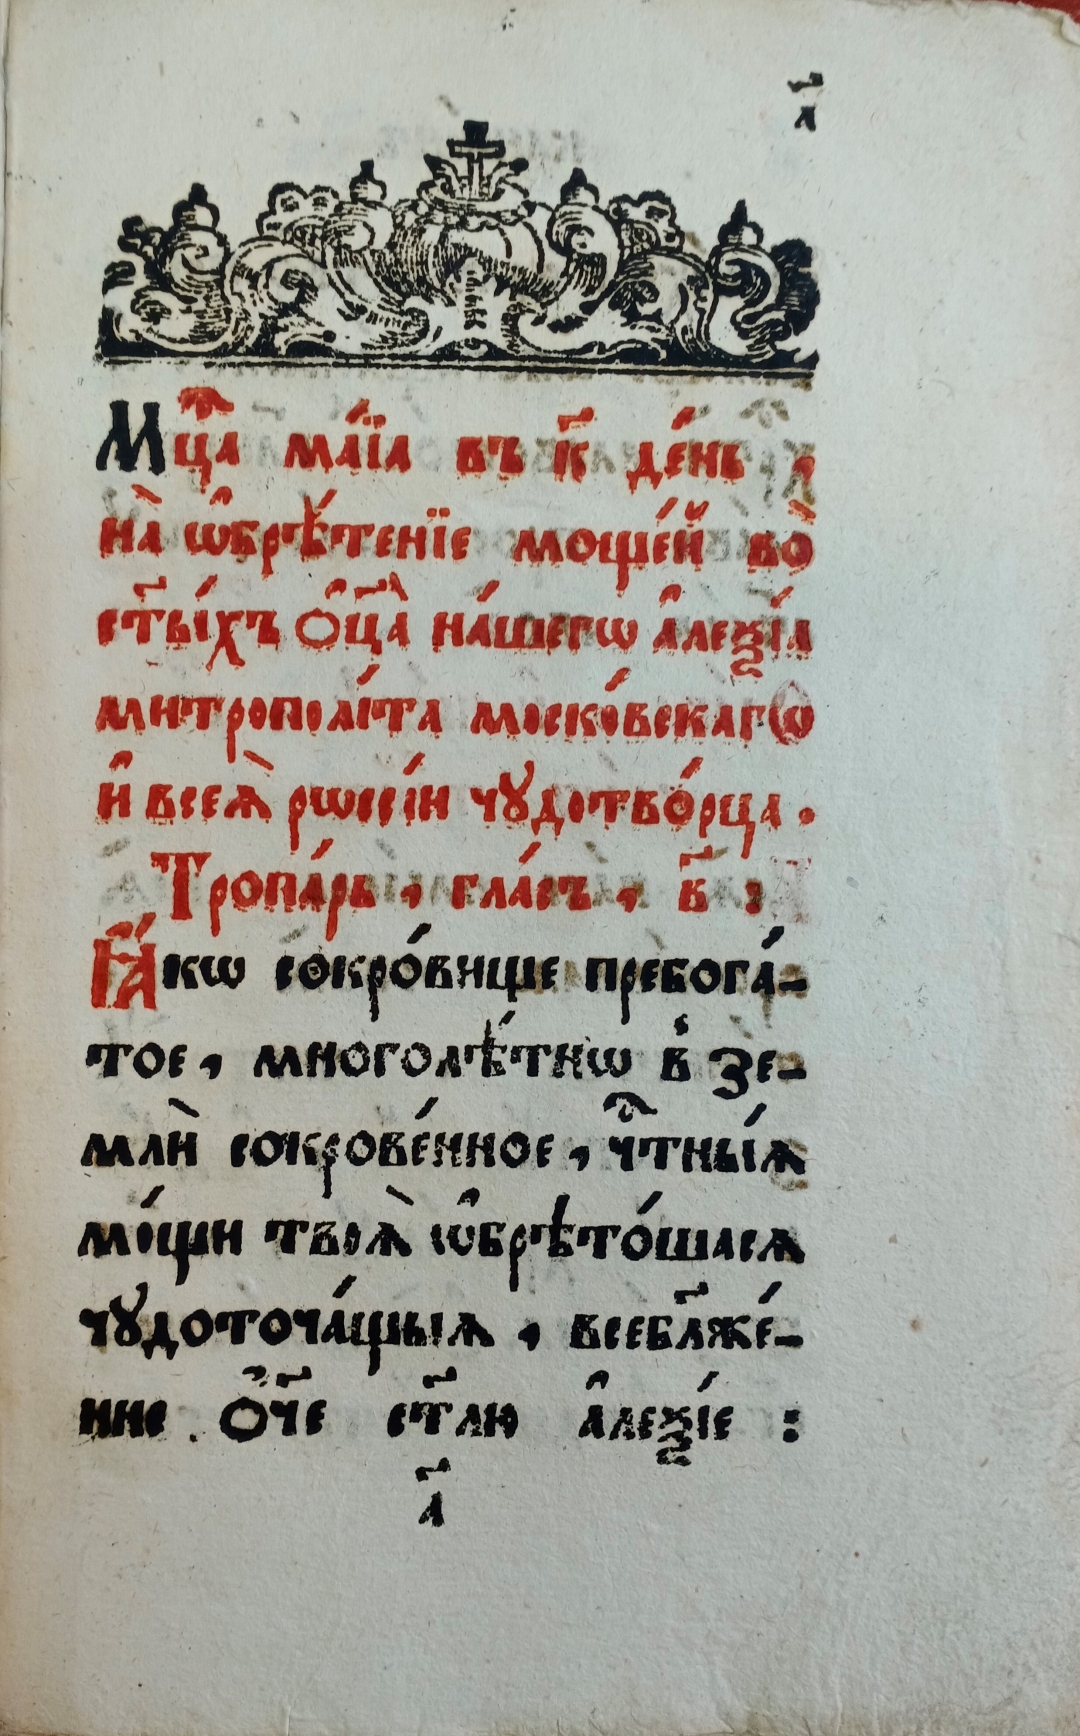 а҃
Мцⷭ҇а ма́їа въ к҃ де́нь ,
на̀ ѡ҆брѣ́тенїе моще́й во̀
ст҃ы́хъ ѻ҆ц҃а̀ на́шегѡ а҆леѯі́а
митрополі́та моско́вскагѡ
и҆ всеѧ̀ рѡсі́и чꙋдотво́рца .
Тропа́рь , гла́съ , в҃ :
Ꙗ҆́кѡ сокро́вище пребога́-
тое , многолѣ́тнѡ в̾ зе-
млѝ сокрове́нное , чⷭ҇тны́ѧ
мо́щи твоѧ̀ ѡ҆брѣто́шасѧ
чꙋдоточа́щыѧ , всебл҃же́-
нне ѻ҆́ч҃е ст҃лю а҆леѯі́е :
а҃